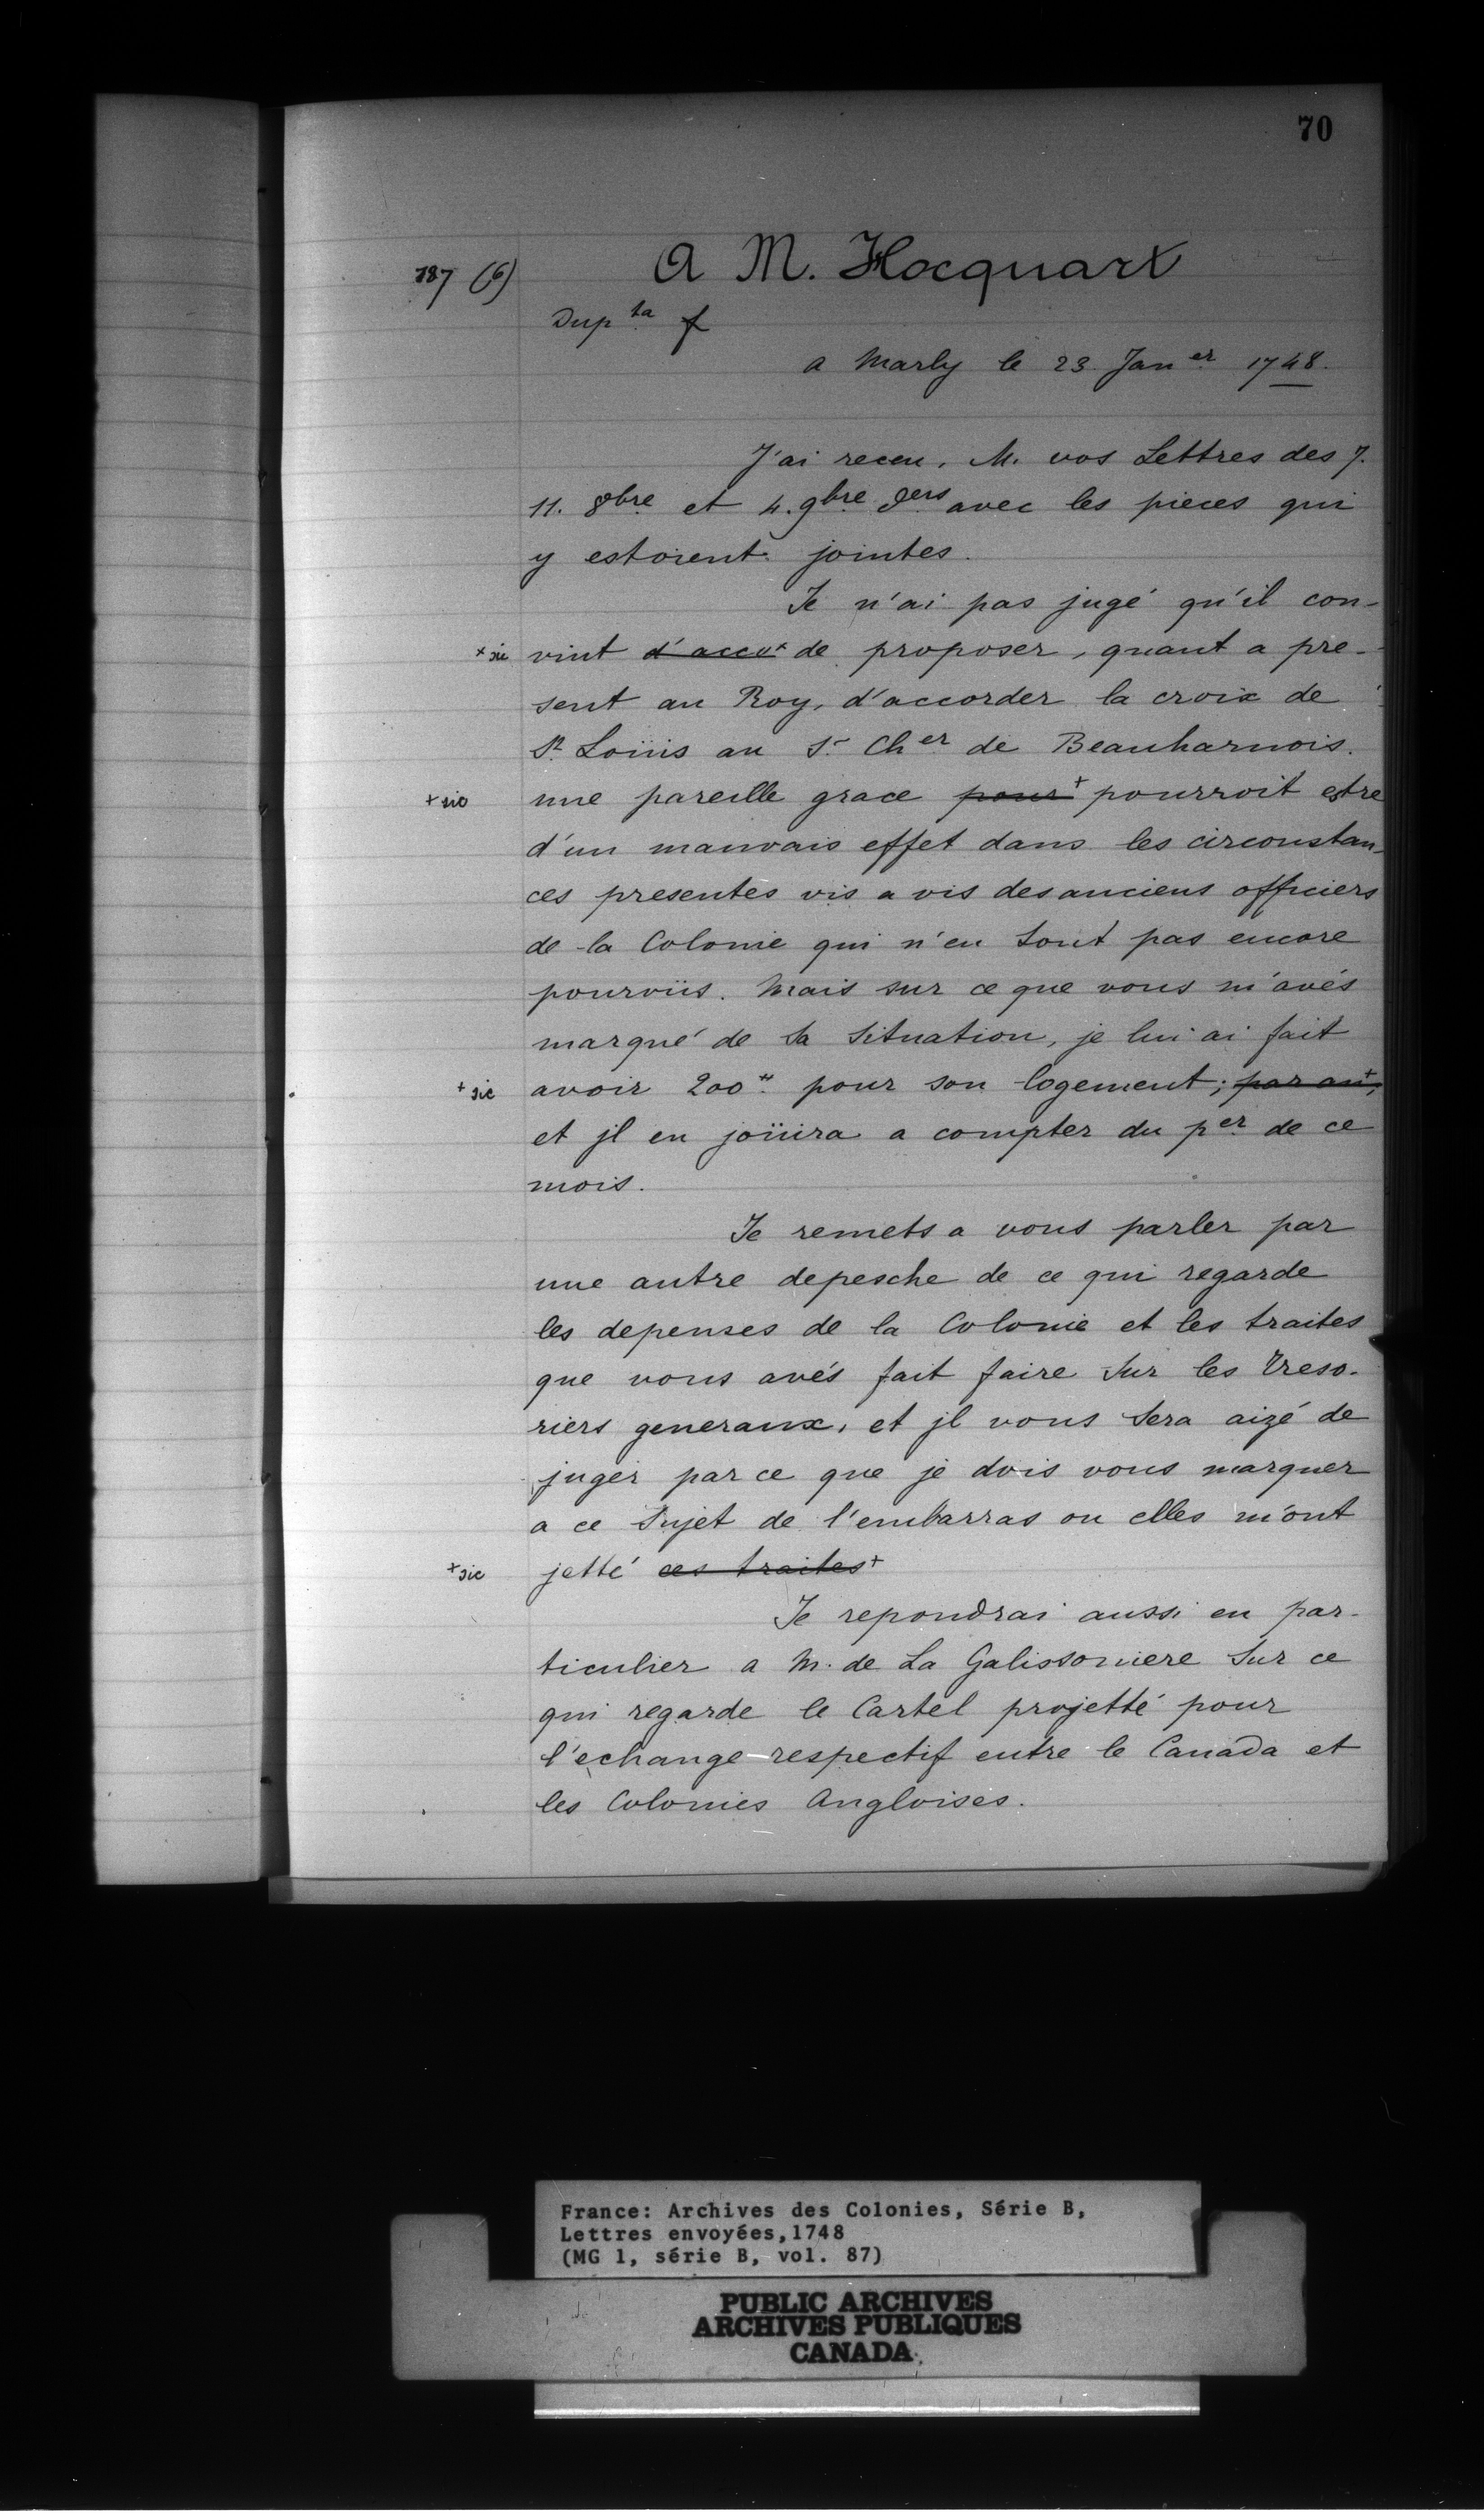 70
187 (6)
A M. Hocquart
Dup ta f
a Marly le 23 Jan er 1748.
J'ai receu, M. vos Lettres des 7.
11. 8bre et 4. 9bre ders avec les pieces qui
y estoient jointes.
Je n'ai pas jugé qu'il con-
+ sic vint d'acco+ de proposer, quant a pre-
sent au Roy, d'accorder la croix de
St. Loüis au Sr. Cher de Beauharnois.
+ sic une pareille grace pour+ pourroit estre
d'un mauvais effet dans les circonstan-
ces presentes vis a vis des anciens officiers
de la Colonie qui n'en sont pas encore
pourvüs. Mais sur ce que vous m'avés
marqué de sa situation, je lui ai fait
+ sic avoir 200# pour son logement; par an+,
et jl en joüira a compter du per de ce
mois.
Je remets a vous parler par
une autre depesche de ce qui regarde
les depenses de la Colonie et les traites
que vous avés fait faire sur les Treso-
riers generaux, et jl vous sera aizé de
juger par ce que je dois vous marquer
a ce sujet de l'embarras ou elles m'ont
+ sic jetté ces traites+
Je repondrai aussi en par-
ticulier a M. de La Galissoniere sur ce
qui regarde le Cartel projetté pour
l'echange respectif entre le Canada et
les Colonies Angloises.
France: Archives des Colonies, Série B,
Lettres envoyées, 1748
(MG 1, série B, vol. 87)
PUBLIC ARCHIVES
ARCHIVES PUBLIQUES
CANADA